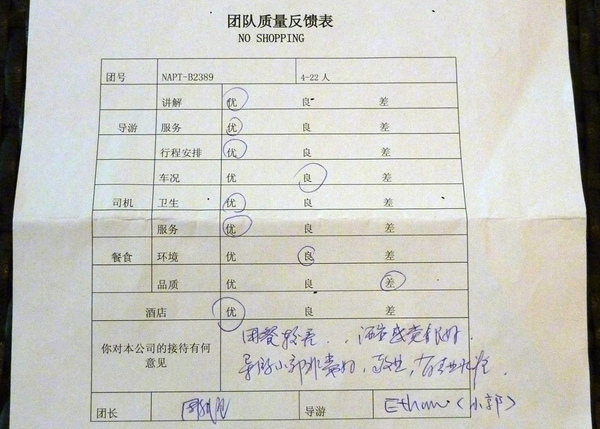 团队质量反馈表
NO SHOPPING
团号 NAPT-B2389 4-22 人
讲解 优 良 差
导游 服务 优 良 差
行程安排 优 良 差
车况 优 良 差
司机 卫生 优 良 差
服务 优 良 差
餐食 环境 优 良 差
品质 优 良 差
酒店 优 良 差
团餐较差. 酒店感觉很好.
你对本公司的接待有何
意见
导游小郭非常好,敬业,有专业水准.
团长 导游 Ethan (小郭)